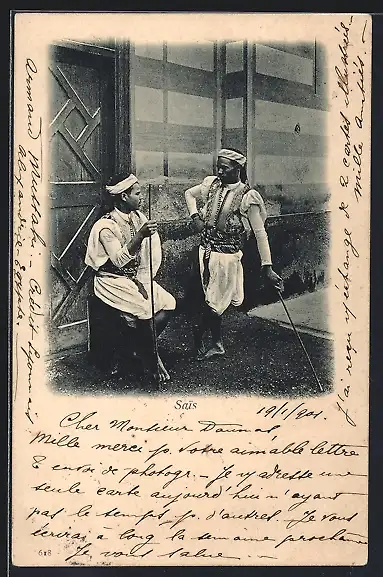 Saïs
19/1/1901
Cher Monsieur
Mille merci p. votre aimable lettre
& envoi de photogr - Je v/ adresse une
seule carte aujourd'hui n'ayant
pas le temps p. d'autres. Je vous
écrirai à long la semaine prochaine
Je vous salue -
618
J'ai reçu v/ échange de 2 cartes illustrées
Mille amitiés -
Armand - Crédit Lyonnais
Alexandrie - Egypte